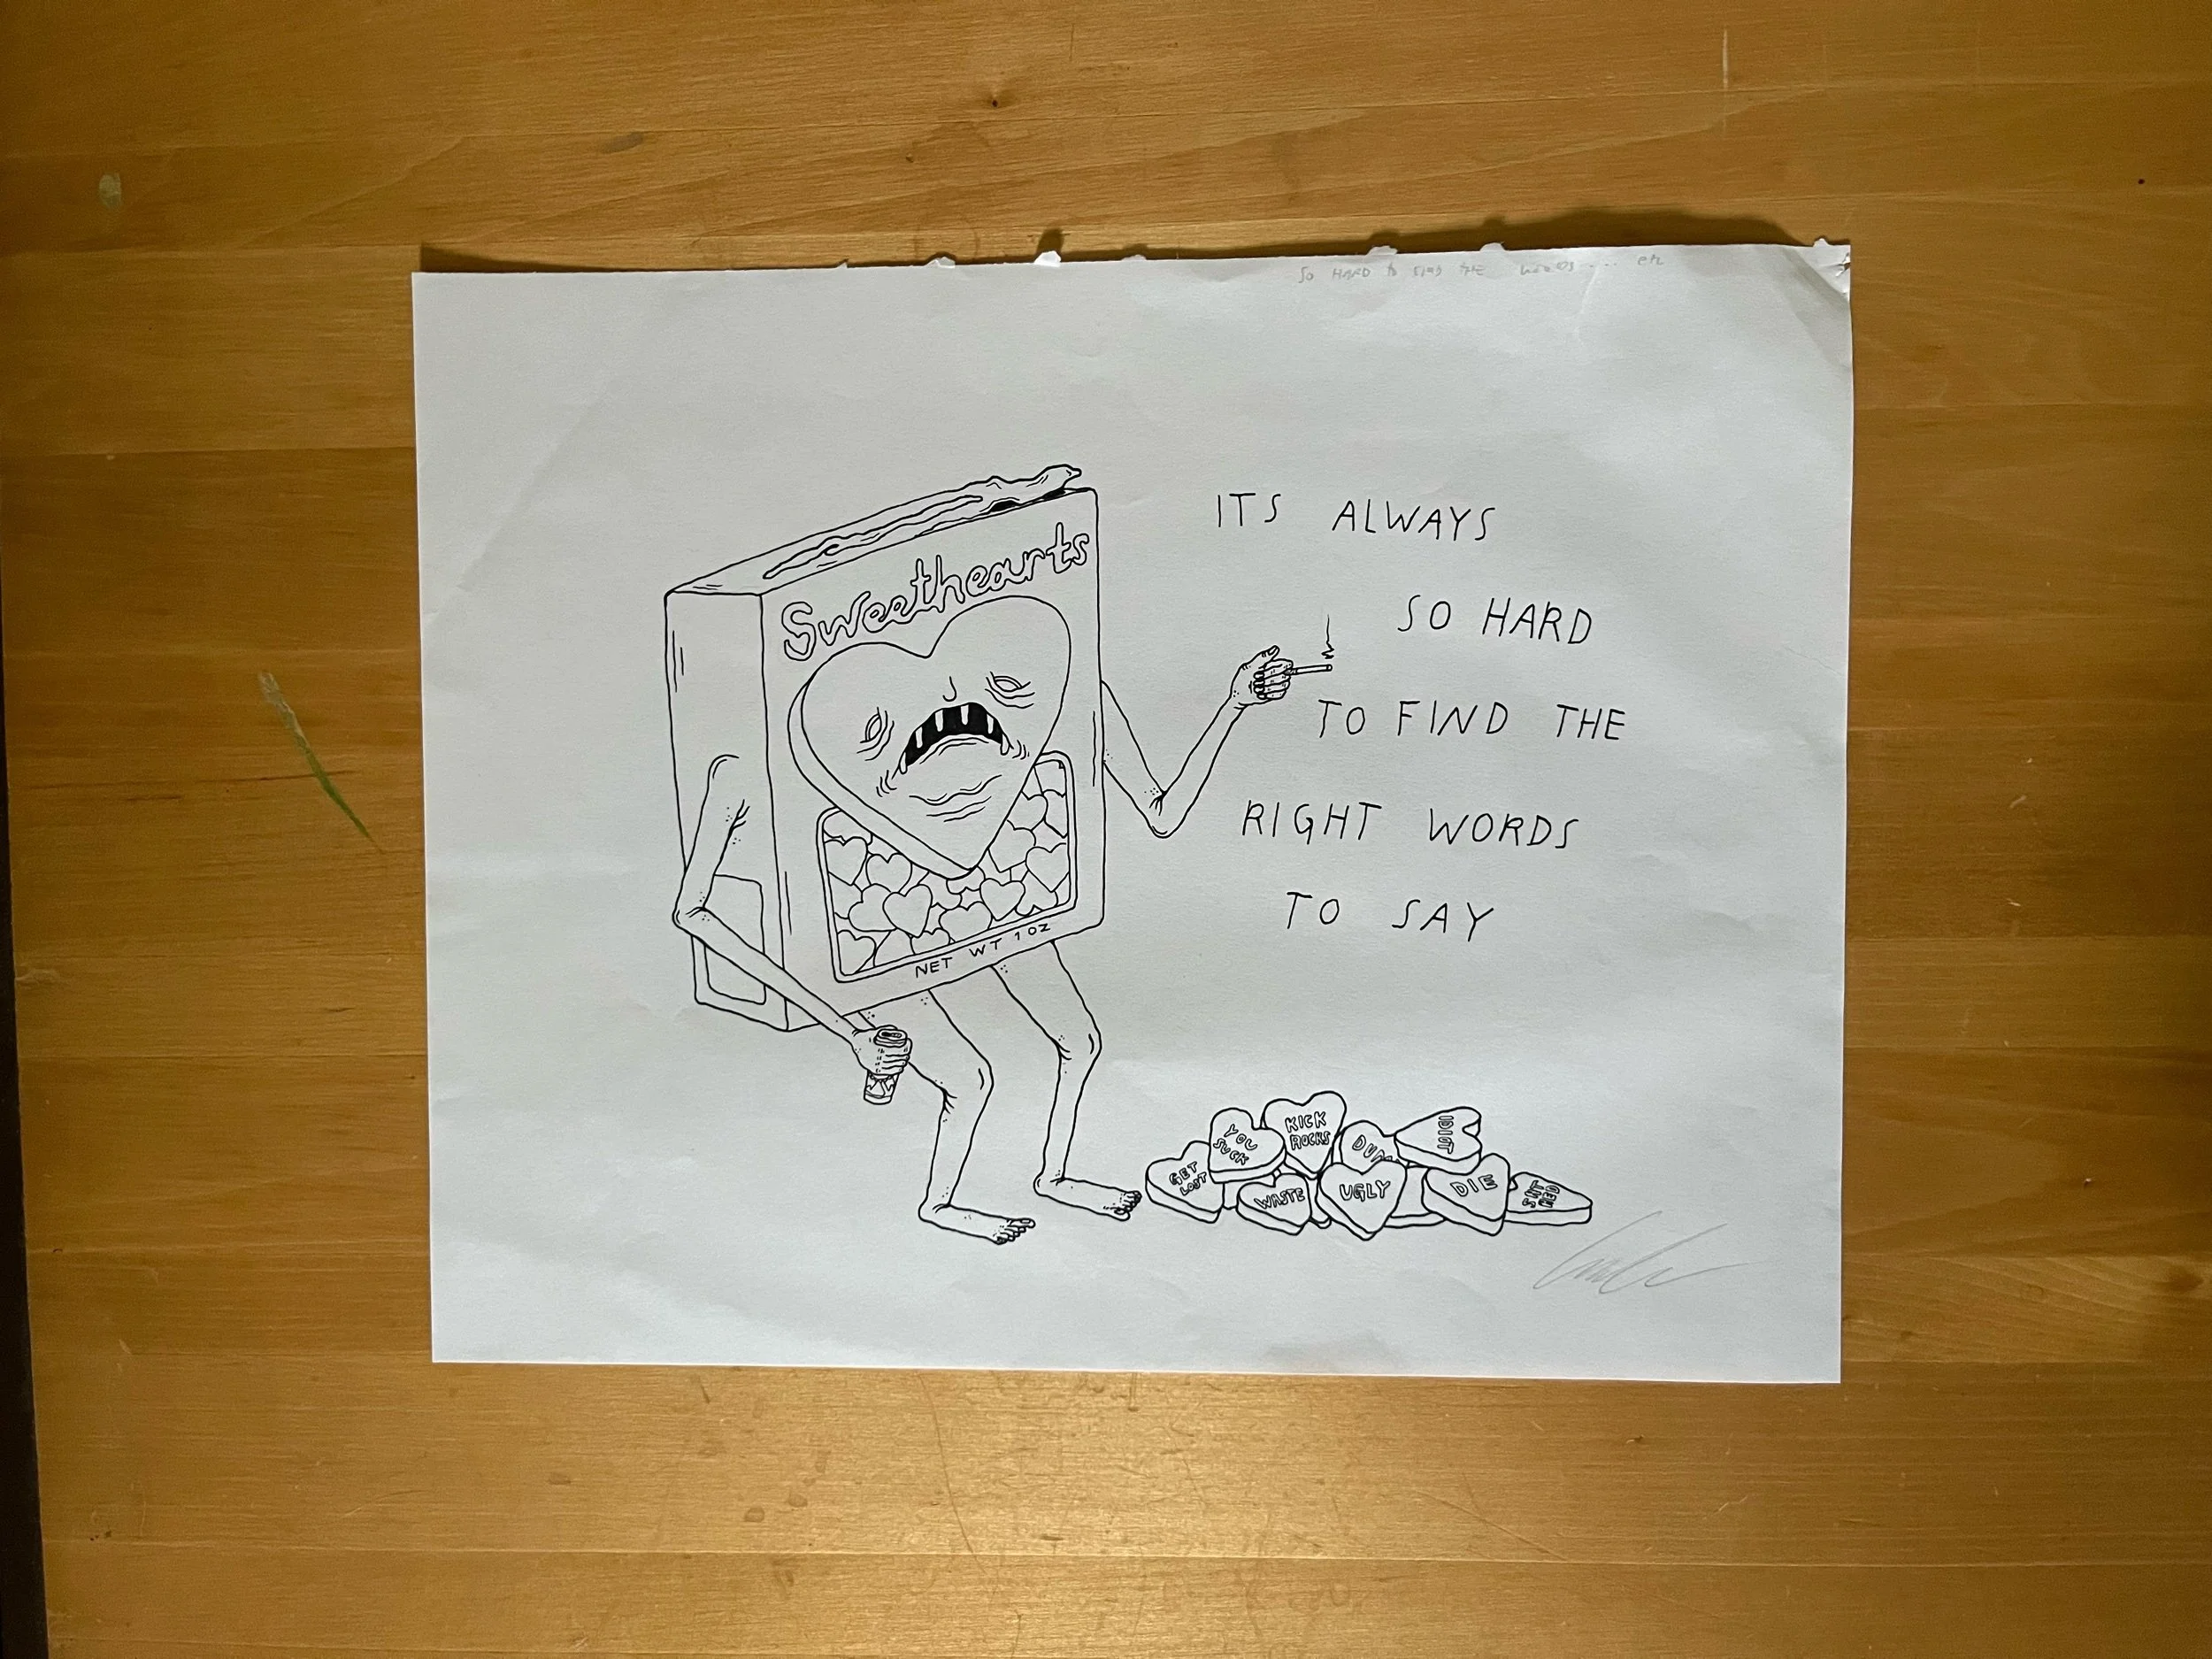 SO HARD to FIND THE WORDS....
Sweethearts
ITS ALWAYS
SO HARD
TO FIND THE
RIGHT WORDS
TO SAY
NET WT 1 OZ
KICK
ROCKS
YOU
SUCK
IDIOT
DUM
GET
LOST
WASTE
UGLY
DIE